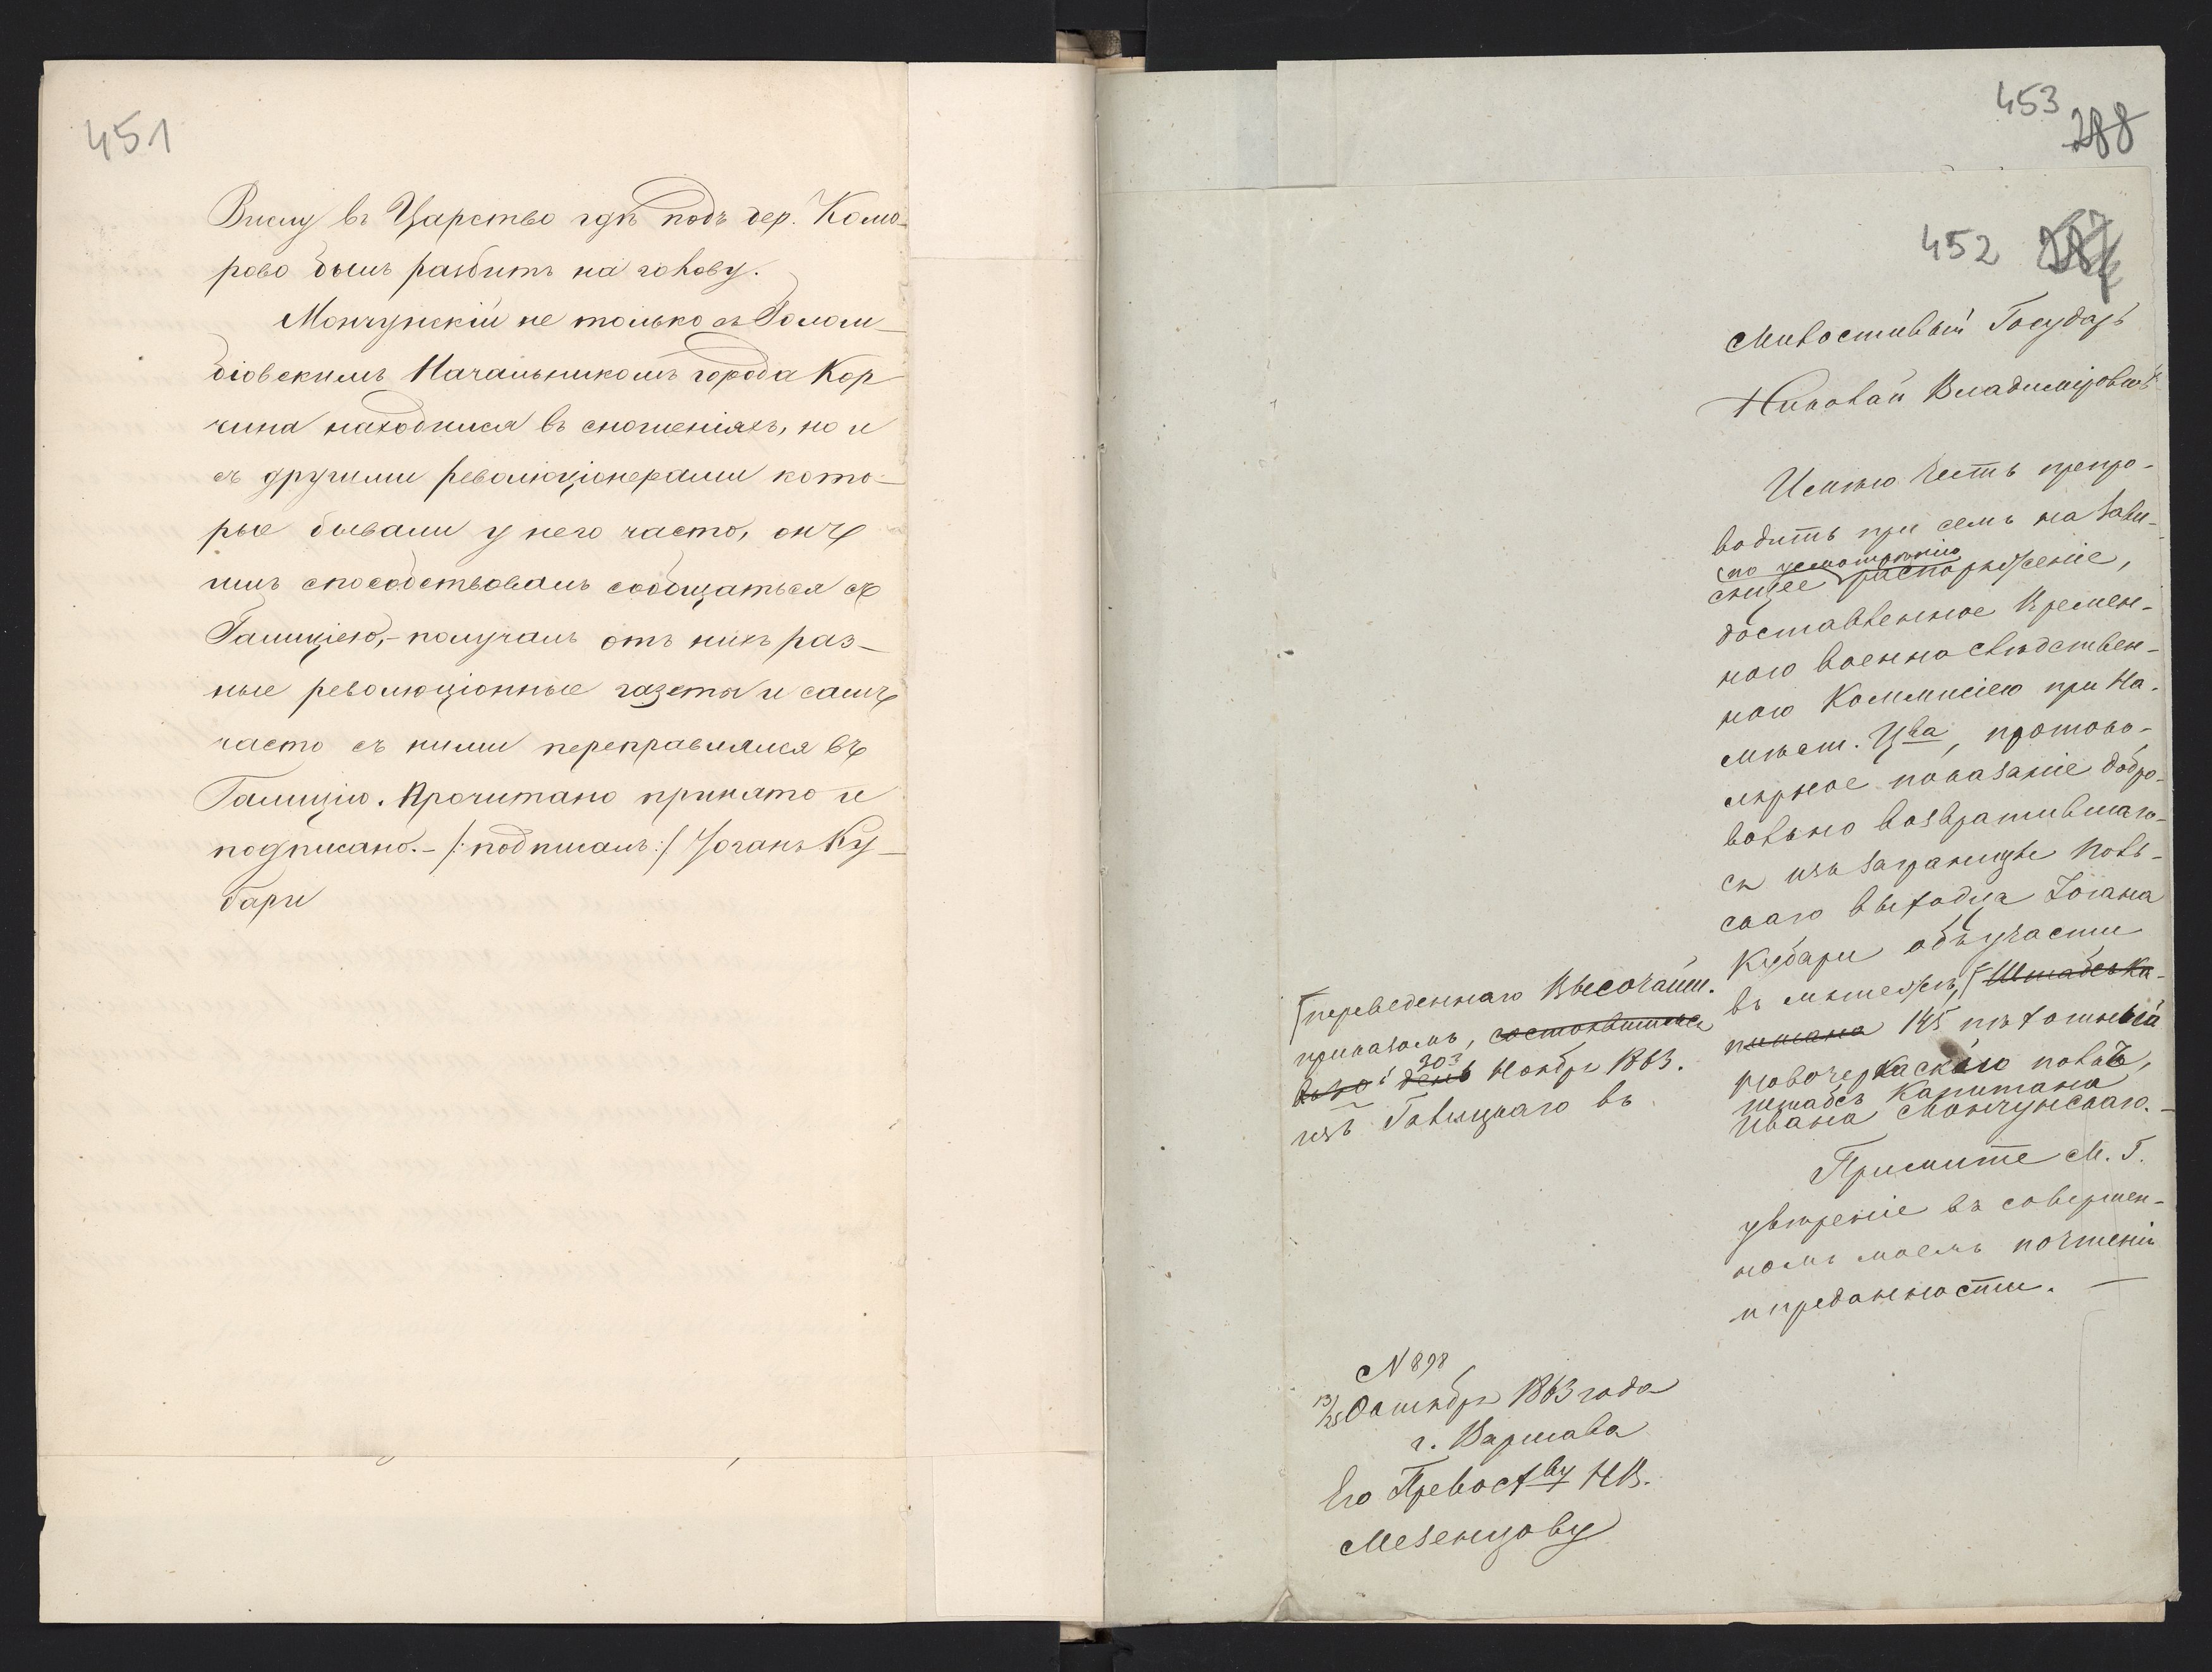 451
Вислу въ Царство гдѣ подъ дер. Комо-
рово былъ разбитъ на голову.
Мончунскій не только съ Голом-
біовскимъ Начальникомъ города Кор-
чина находился въ сношеніяхъ, но и
съ другими революціонерами кото-
рые бывали у него часто, онъ
имъ способствовалъ сообщаться съ
Галиціею,- получалъ отъ нихъ раз-
ные революціонные газеты и самъ
часто съ ними переправлялся въ
Галицію. Прочитано принято и
подписано.- /:подписалъ:/ Іоганъ Ку-
бари
453
288
452
Милостивый Государь
Николай Владиміровичъ
Имѣю честь препро-
водить при семъ на зави-
по усмотрѣнію
сящее распоряженіе,
доставленное Времен-
ною Военно Слѣдствен-
ною Коммисіею при На-
мѣст. Ц<u>ва</u>, протоко-
лярное показаніе добро-
вольно возвратившаго-
ся изъ заграницы поль-
скаго выходца Іогана
Кубари объ участіи
въ мятежѣ, Штабсъ Ка-
питана 145 пѣхотный
Новочеркаскаго полкъ,
штабсъ Капитана
Ивана Мончунскаго.-
Примите М. Г.
увѣреніе въ совершен-
номъ моемъ почтеніи
и преданности. —
переведеннаго Высочайш.
приказомъ, состоявшемся
въ 30 день Ноября 1863.
изъ Галицкаго въ
N 898
13/25 Октября 1863 года
г. Варшава
Его Превосх<u>ву</u> НВ.
Мезенцову